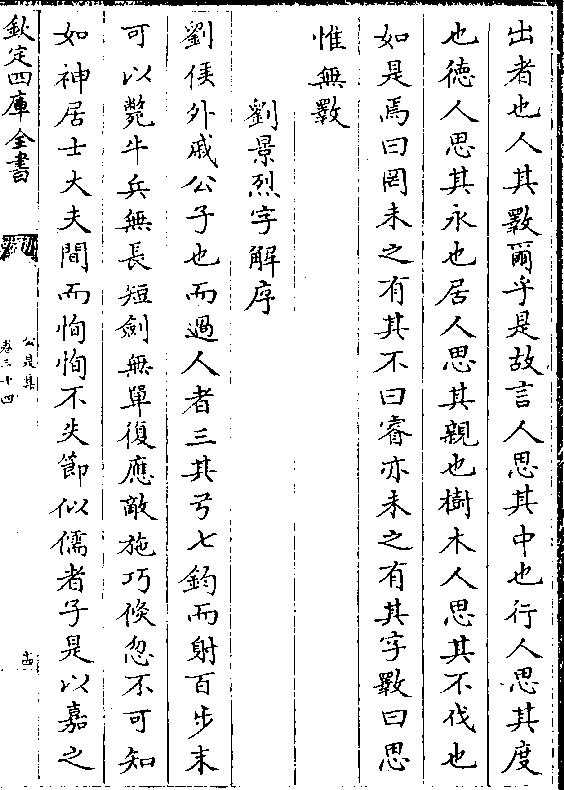 出者也人其斁爾乎是故言人思其中也行人思其度
也徳人思其永也居人思其親也樹木人思其不伐也
如是焉曰罔未之有其不曰睿亦未之有其字斁曰思
惟無斁
劉景烈字解序
劉侯外戚公子也而過人者三其弓七鈞而射百步末
可以斃牛兵無長短劍無單復應敵施巧倐忽不可知
如神居士大夫間而恂恂不失節似儒者子是以嘉之
欽定四庫全書
公是集
卷三十四